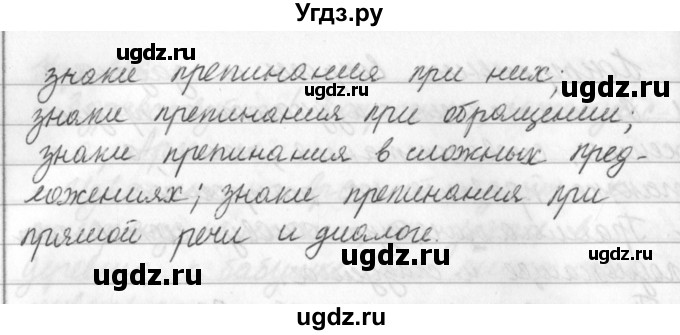 Угдз.ру
ugdz.ru ugdz.ru
знаки препинания при них;
ugdz.ru
знаки препинания при обращении;
ugdz.ru
знаки препинания в сложных пред-
ugdz.ru
ложениях; знаки препинания при
ugdz.ru
прямой речи и диалоге.
ugdz.ru ugdz.ru
ugdz.ru
Угдз.ру